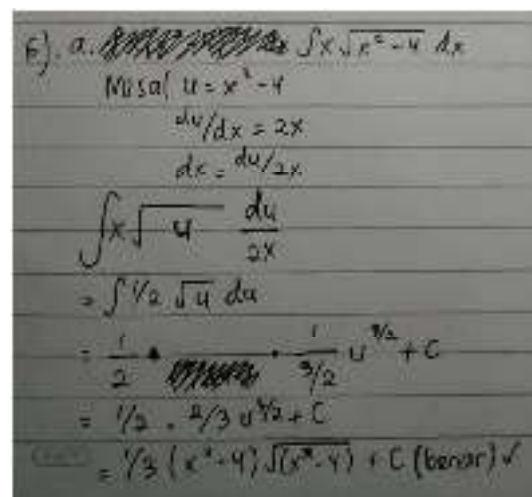 6). a. ∫x√x²-4 dx
Misal u = x²-4
du/dx = 2x
dx = du/2x
∫x√u du/2x
= ∫ 1/2 √u du
= 1/2 · 1/3/2 u^3/2 + C
= 1/2 . 2/3 u^3/2 + C
= 1/3 (x²-4) √(x²-4) + C (benar) ✓